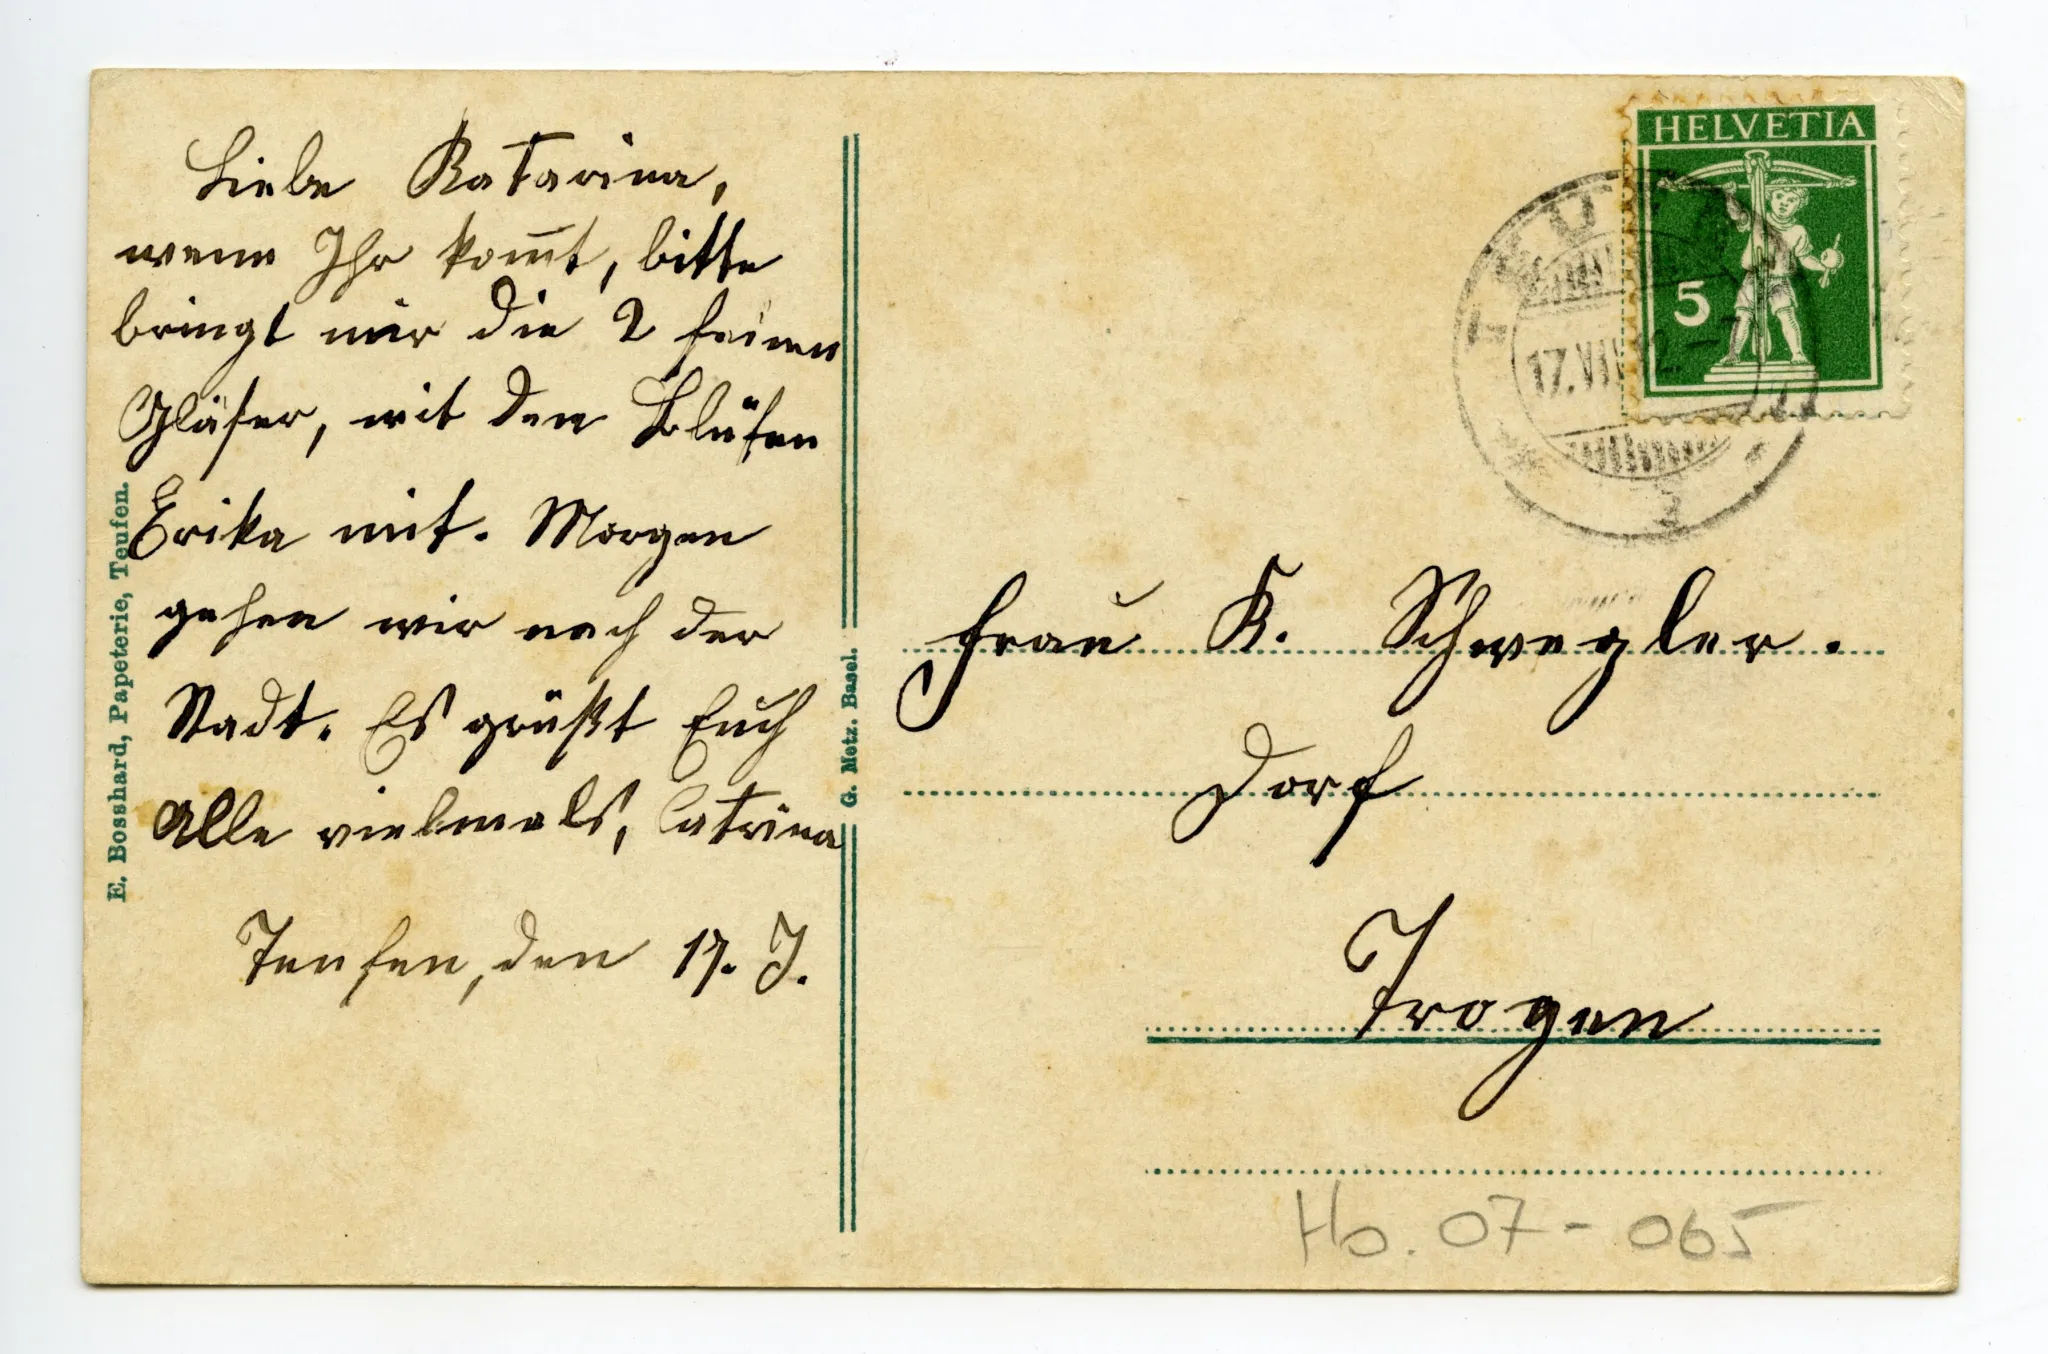 Liebe Katarina,
wenn Ihr kom̅t, bitte
bringt mir die 2 feinen
Gläser, mit den
Erika mit. Morgen
gehen wir nach der
Stadt. Es grüßt Euch
Alle vielmals, Catrina
Teufen, den 17. J.
E. Bosshard, Papeterie, Teufen.
G. Metz. Basel.
HELVETIA
5
TEUFEN
17.VII
Frau K. Schwegler.
Dorf
Trogen
Ho. 07-065